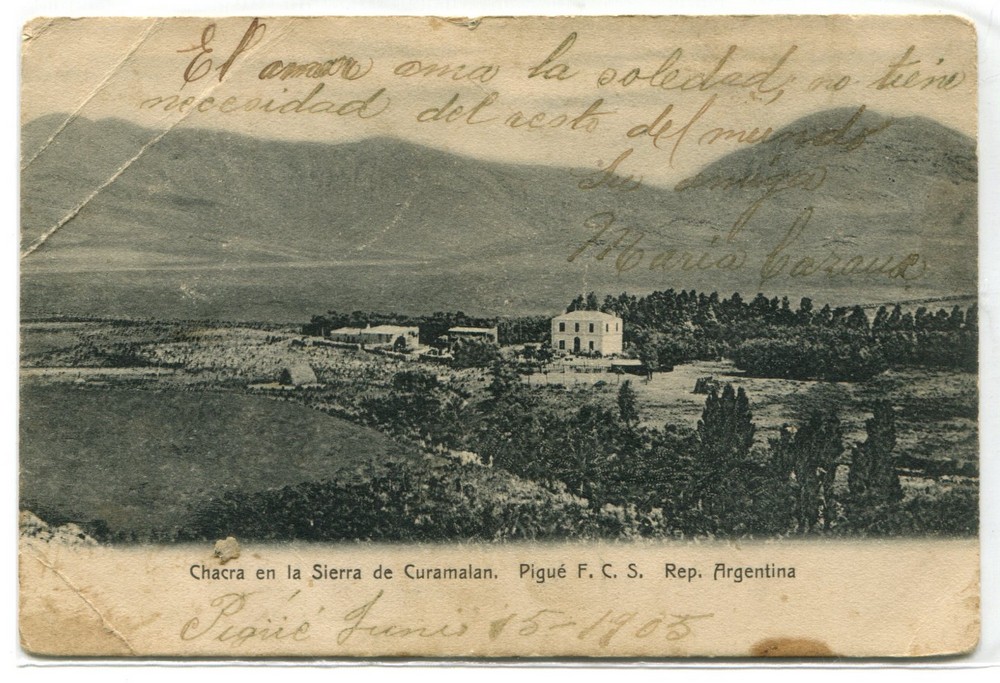 El amor ama la soledad, no tiene
necesidad del resto del mundo
Su amiga
María
Chacra en la Sierra de Curamalan. Pigué F. C. S. Rep. Argentina
Pigüé Junio 15-1905